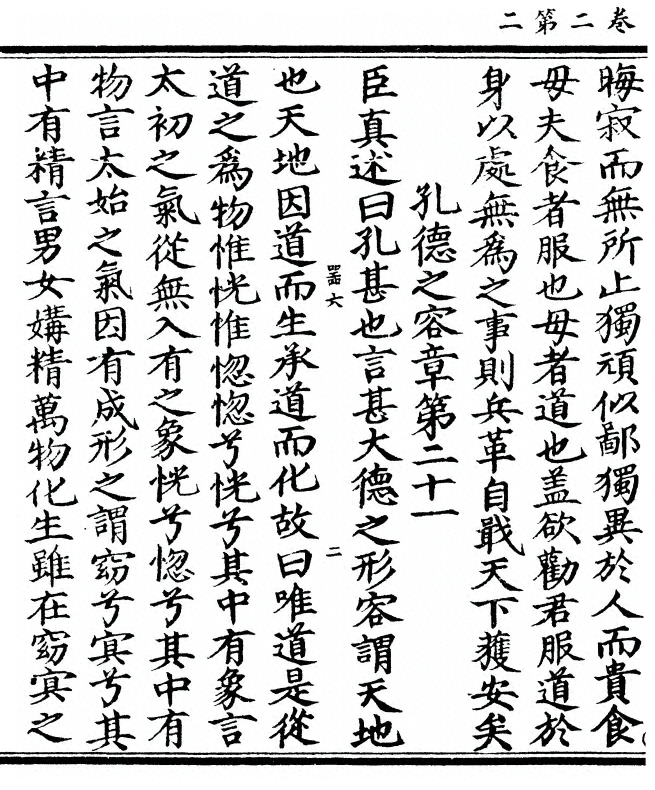 卷二第二
晦寂而無所止獨頑似鄙獨異於人而貴食
母夫食者服也母者道也蓋欲勸君服道於
身以處無爲之事則兵革自戢天下獲安矣
孔德之容章第二十一
臣真述曰孔甚也言甚大德之形容謂天地
罟六
二
也天地因道而生承道而化故曰唯道是從
道之爲物惟恍惟惚惚兮恍兮其中有象言
太初之氣從無入有之象恍兮惚兮其中有
物言太始之氣因有成形之謂窈兮冥兮其
中有精言男女媾精萬物化生雖在窈冥之